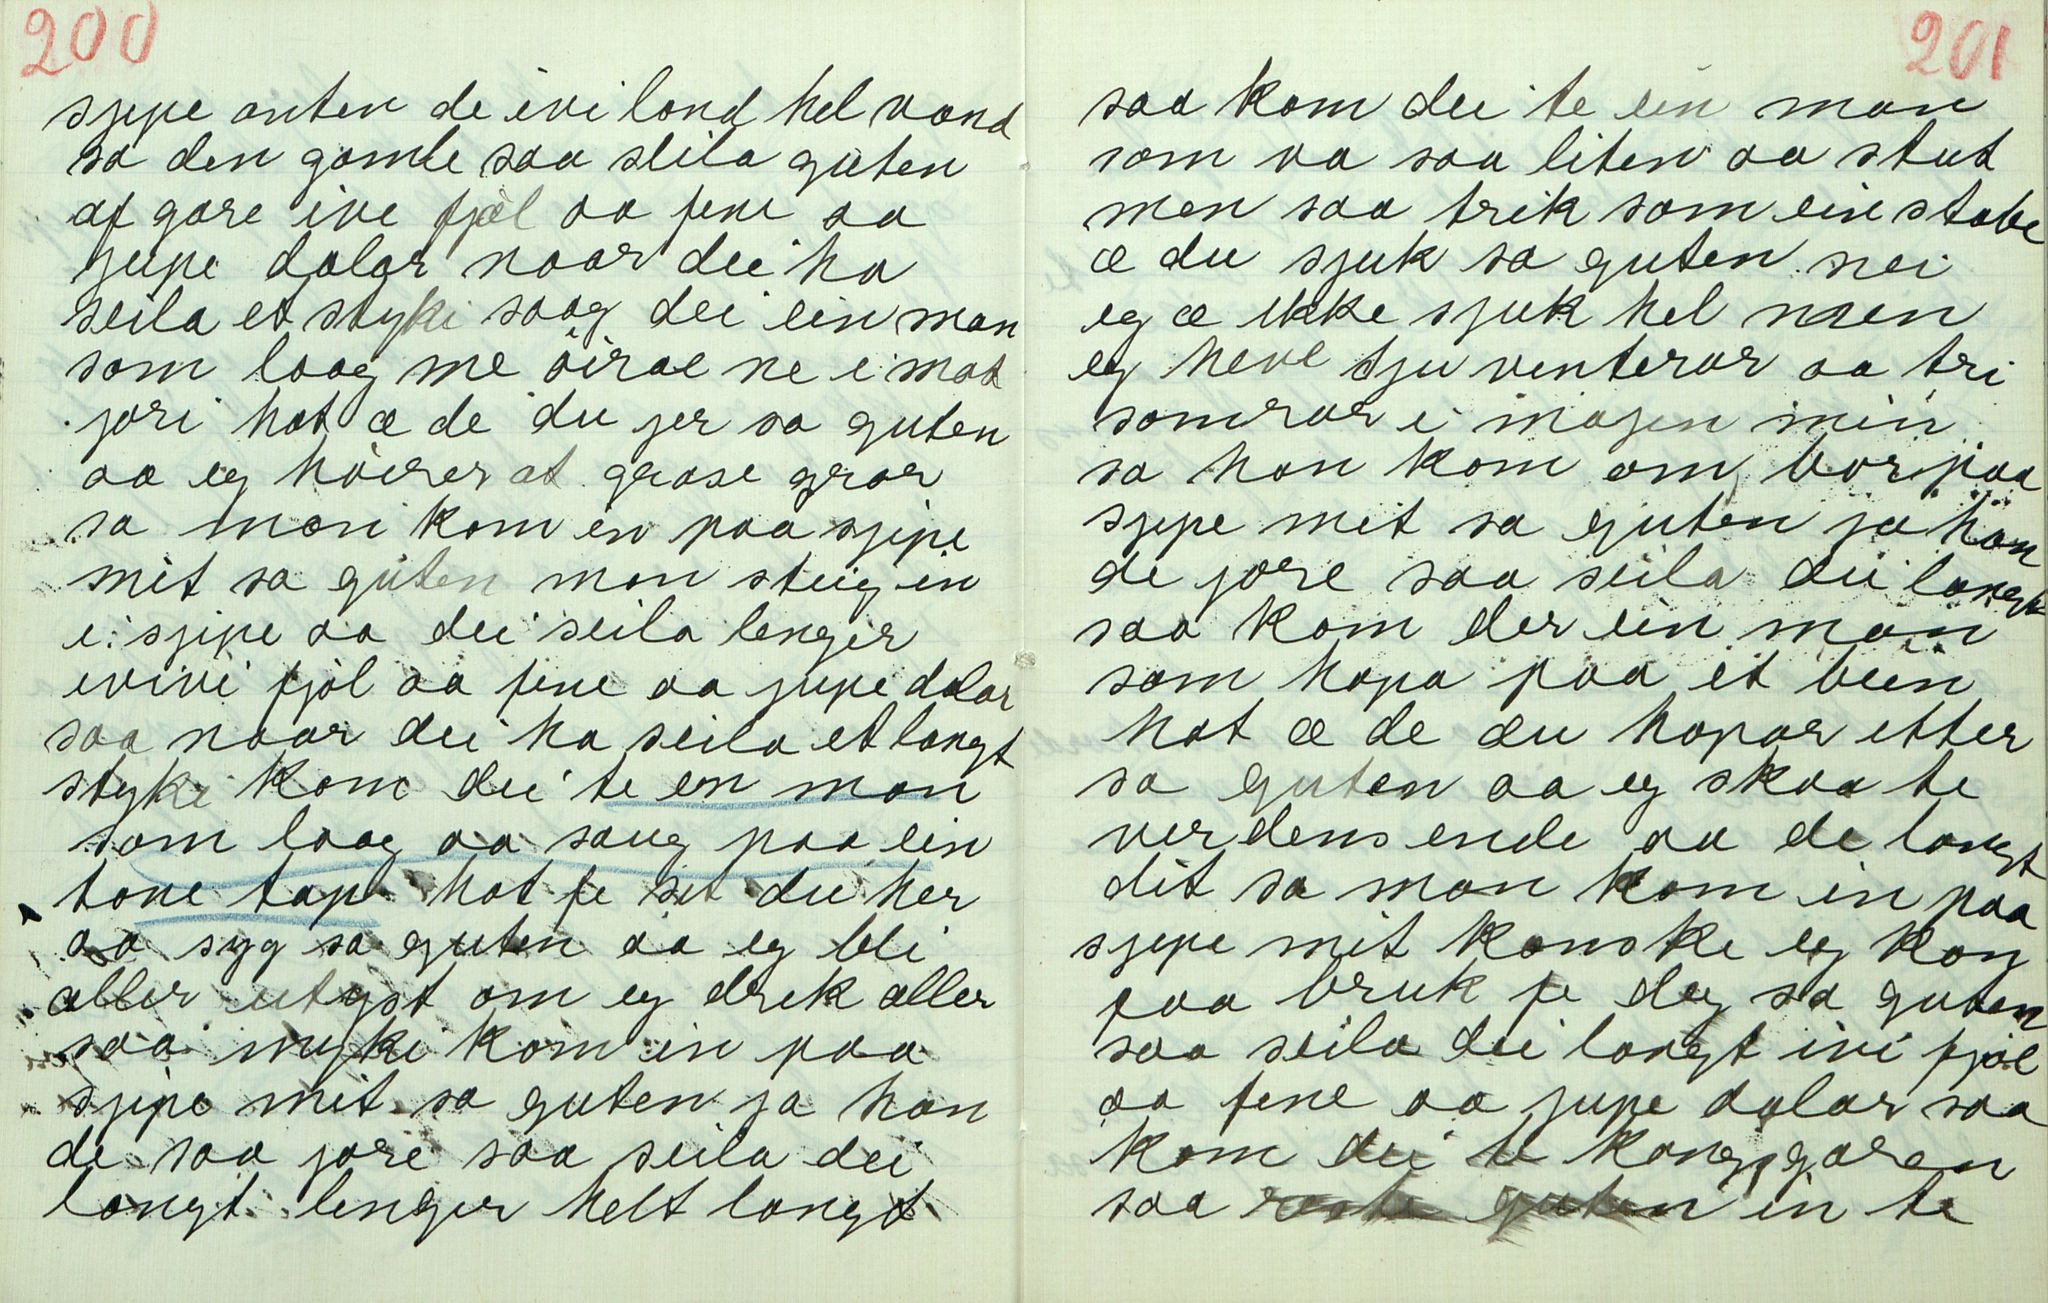 200
sjipe anten de eivi land hel vand
sa den gamle saa seila guten
af gare ive fjæl aa fene aa
jupe dalar naar dei ha
seila et styki saag dei ein man
som laag me öirae ne i mot
jori hat æ de du jer sa guten
aa eg höirer at grase gror
sa man kom in paa sjipe
mit sa guten man steig in
i sjipe aa dei seila lenger
ivivi fjöl aa fene aa jupe dalar
saa naar dei ha seila et langt
styki kom dei te en man
som laag aa saug paa ein
tone tap hat fe set du her
aa syg sa guten aa eg bli
aller utyst om eg drek aller
saa myki kom in paa
sjipe mit sa guten ja han
de saa jore saa seila dei
langt lenger helt langt
201
saa kom dei te ein man
som va saa liten aa stut
men saa trik som ein stabe
æ du sjuk sa guten nei
eg æ ikke sjuk hel men
eg heve sju venterar aa tri
somrar i majen min
sa han kom om bor paa
sjipe mit sa guten ja han
de jore saa seila dei langt
saa kom der ein man
som hopa paa et bein
hat æ de du hopar etter
sa guten aa eg skaa te
verdens ende aa de langt
dit sa man kom in paa
sjipe mit kanske eg kan
faa bruk fe deg sa guten
saa seila dei langt ivi fjöl
aa fene aa jupe dalar saa
kom dei te kongsgaren
saa guten in te